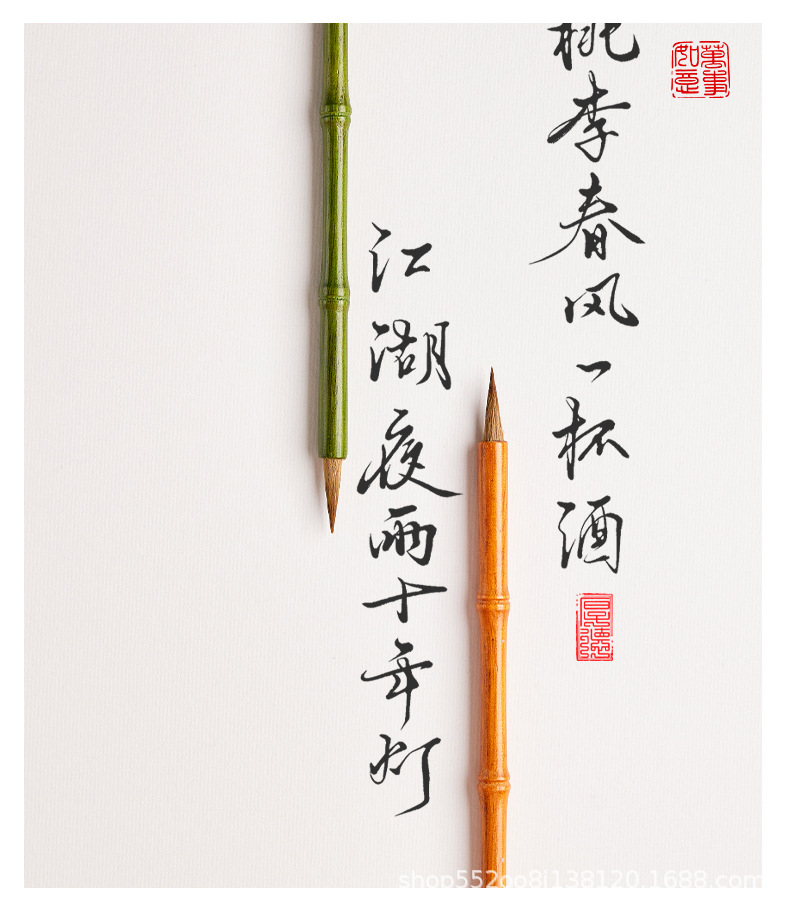 萬事如意
桃李春风一杯酒
江湖夜雨十年灯
shop552oo8j138120.1688.com